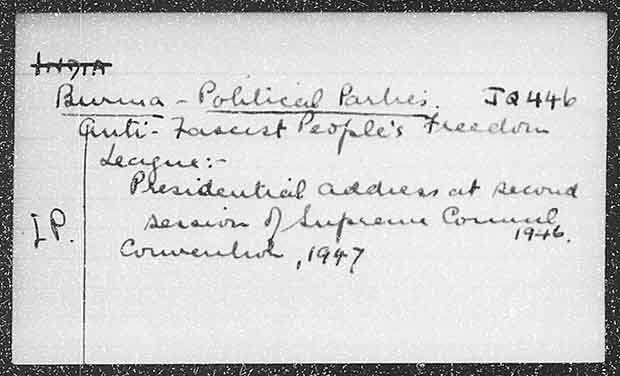 INDIA
Burma - Political Parties. JQ446
Anti-Fascist People's Freedom
League:-
Presidential address at second
session of Supreme Council, 1946.
I.P. Convention, 1947